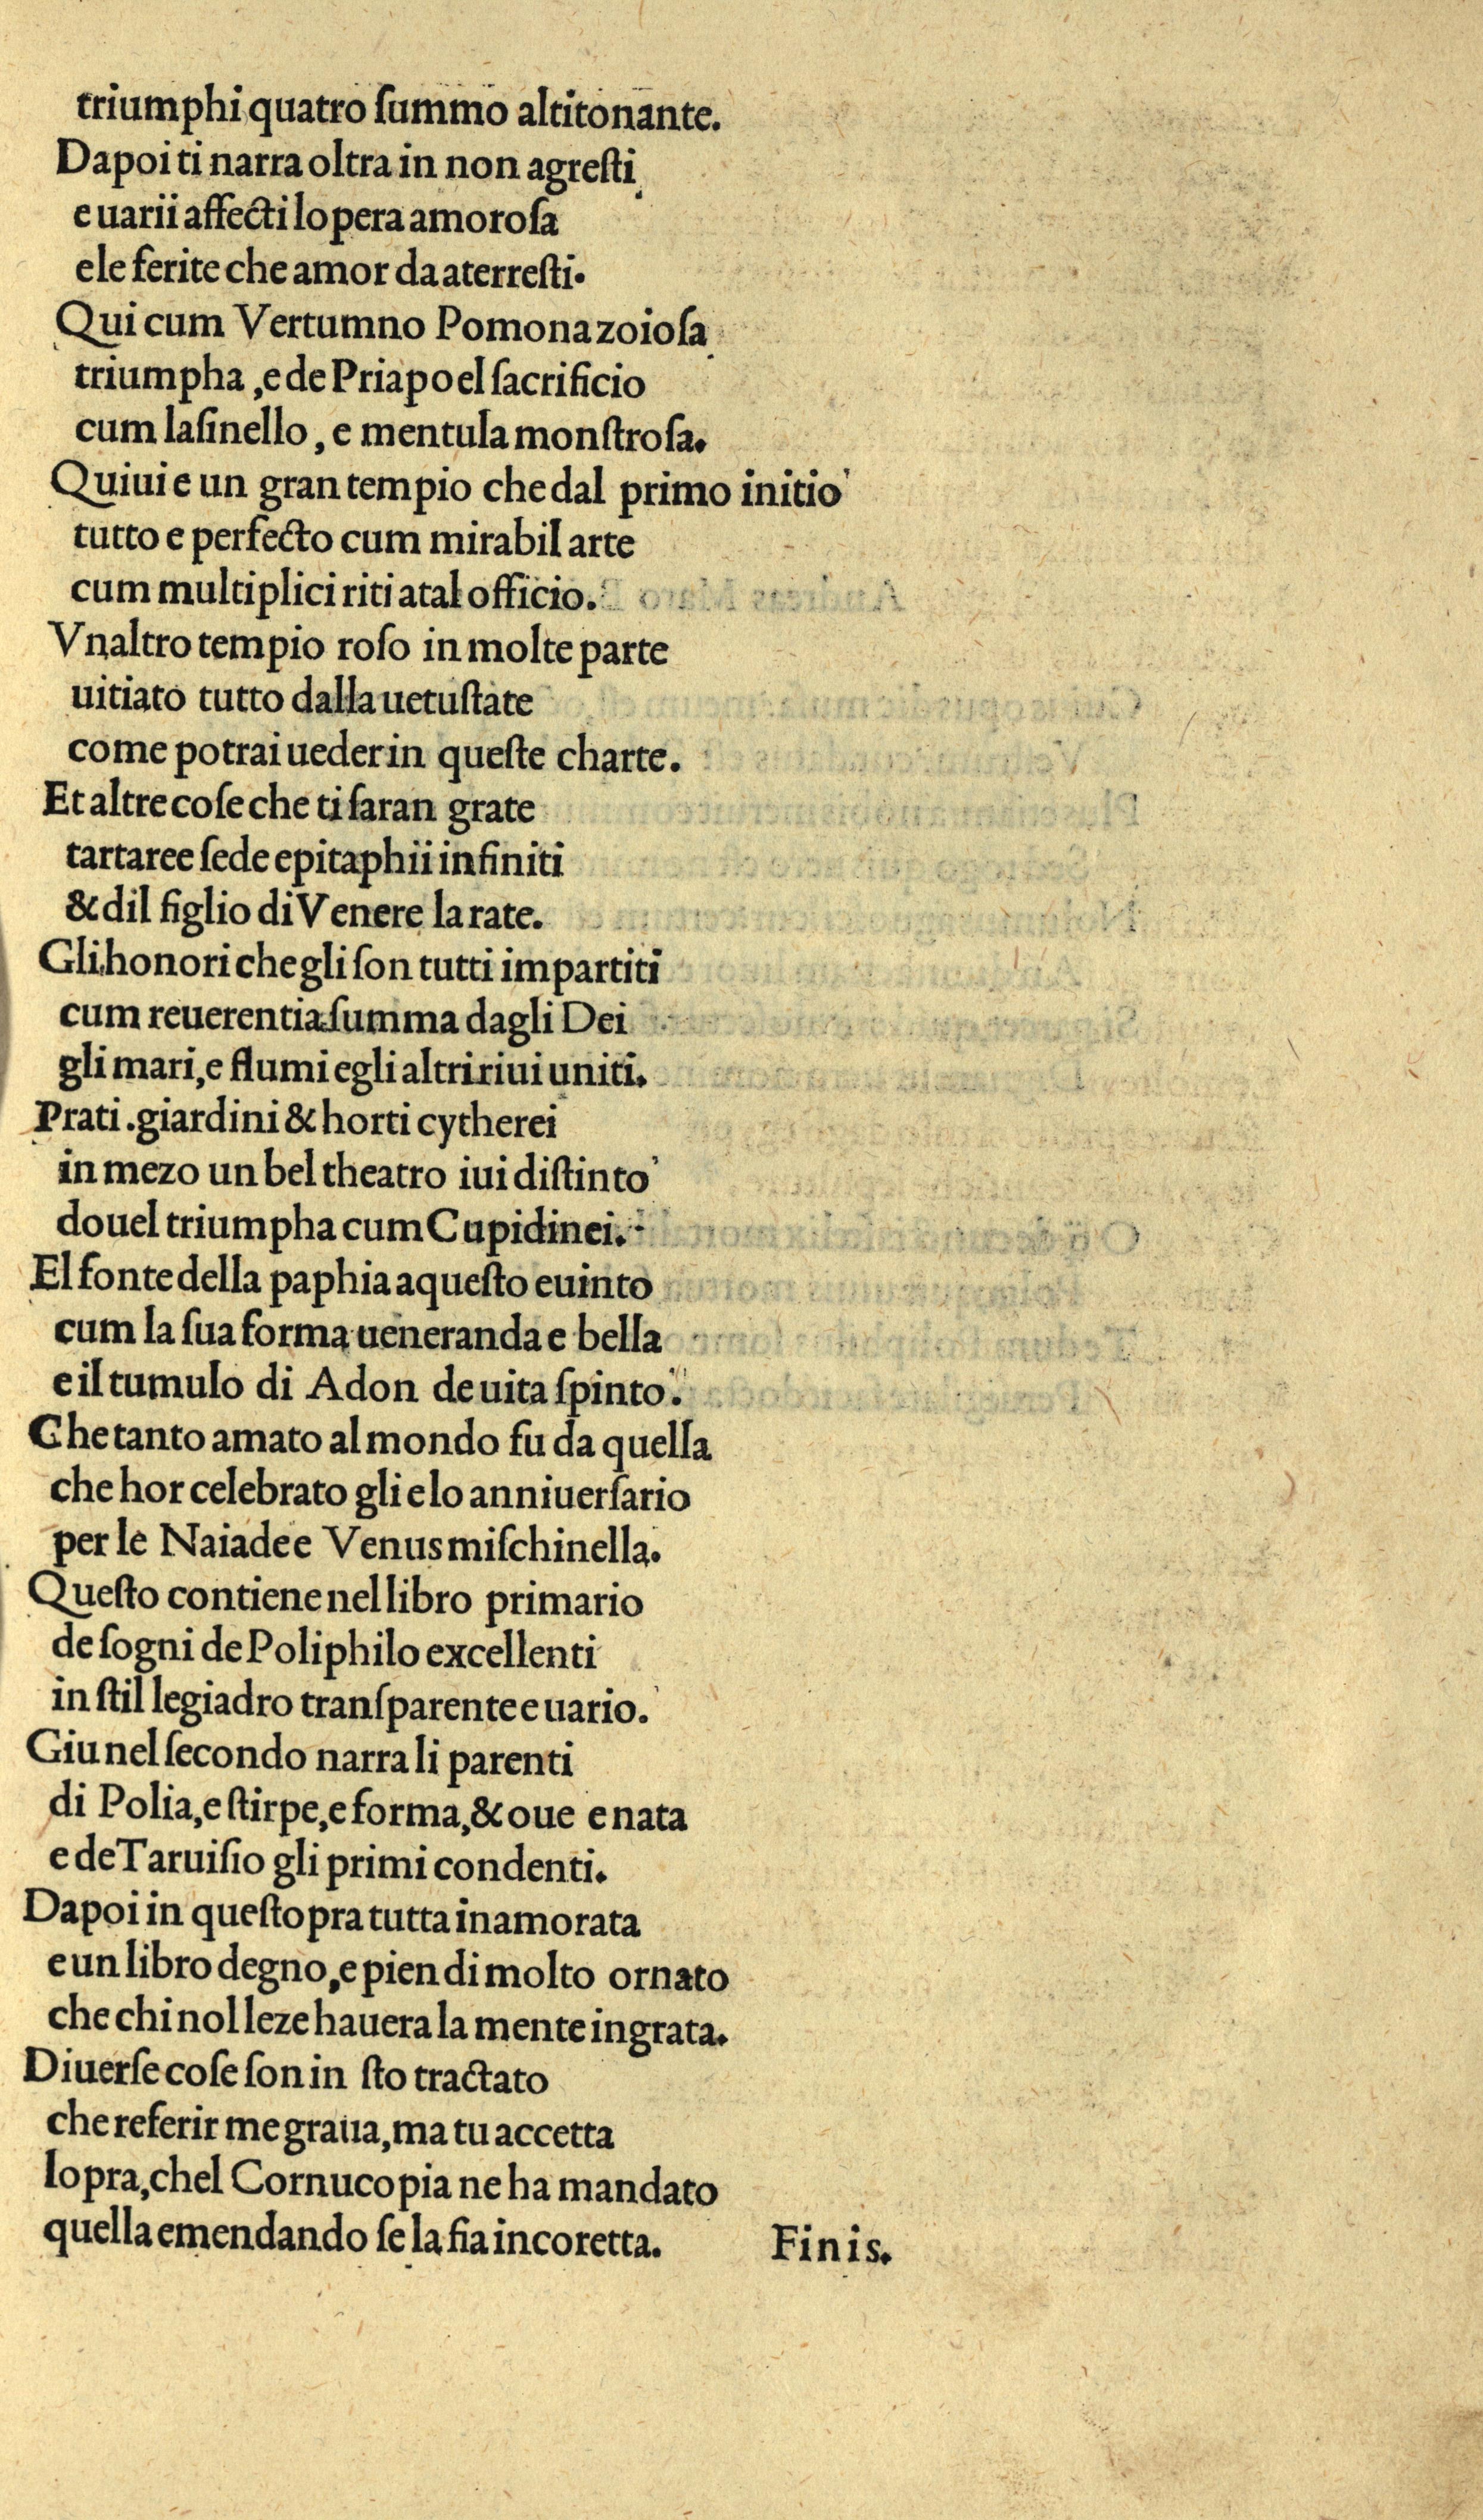 triumphi quatro ſummo altitonante.
Dapoi ti narra oltra in non agreſti
e uarii affecti lopera amoroſa
e le ferite che amor da a terreſti.
Qui cum Vertumno Pomona zoioſa
triumpha, e de Priapo el ſacrificio
cum laſinello, e mentula monſtroſa.
Quiui e un gran tempio che dal primo initio
tutto e perfecto cum mirabil arte
cum multiplici riti a tal officio.
Vnaltro tempio roſo in molte parte
uitiato tutto dalla uetuſtate
come potrai ueder in queſte charte.
Et altre coſe che ti ſaran grate
tartaree ſede epitaphii infiniti
& dil figlio di Venere la rate.
Gli honori che gli ſon tutti impartiti
cum reuerentia ſumma dagli Dei
gli mari, e flumi e gli altri riui uniti.
Prati. giardini & horti cytherei
in mezo un bel theatro iui diſtinto
douel triumpha cum Cupidinei.
El fonte della paphia a queſto e uinto
cum la ſua forma ueneranda e bella
e il tumulo di Adon de uita ſpinto.
Che tanto amato al mondo fu da quella
che hor celebrato gli e lo anniuerſario
per le Naiade e Venus miſchinella.
Queſto contiene nel libro primario
de ſogni de Poliphilo excellenti
in ſtil legiadro tranſparente e uario.
Giu nel ſecondo narra li parenti
di Polia, e ſtirpe, e forma, & oue e nata
e de Taruiſio gli primi condenti.
Dapoi in queſto pra tutta inamorata
e un libro degno, e pien di molto ornato
che chi nol leze hauera la mente ingrata.
Diuerſe coſe ſon in ſto tractato
che referir me graua, ma tu accetta
lopra, chel Cornucopia ne ha mandato
quella emendando ſe la ſia incoretta. Finis.